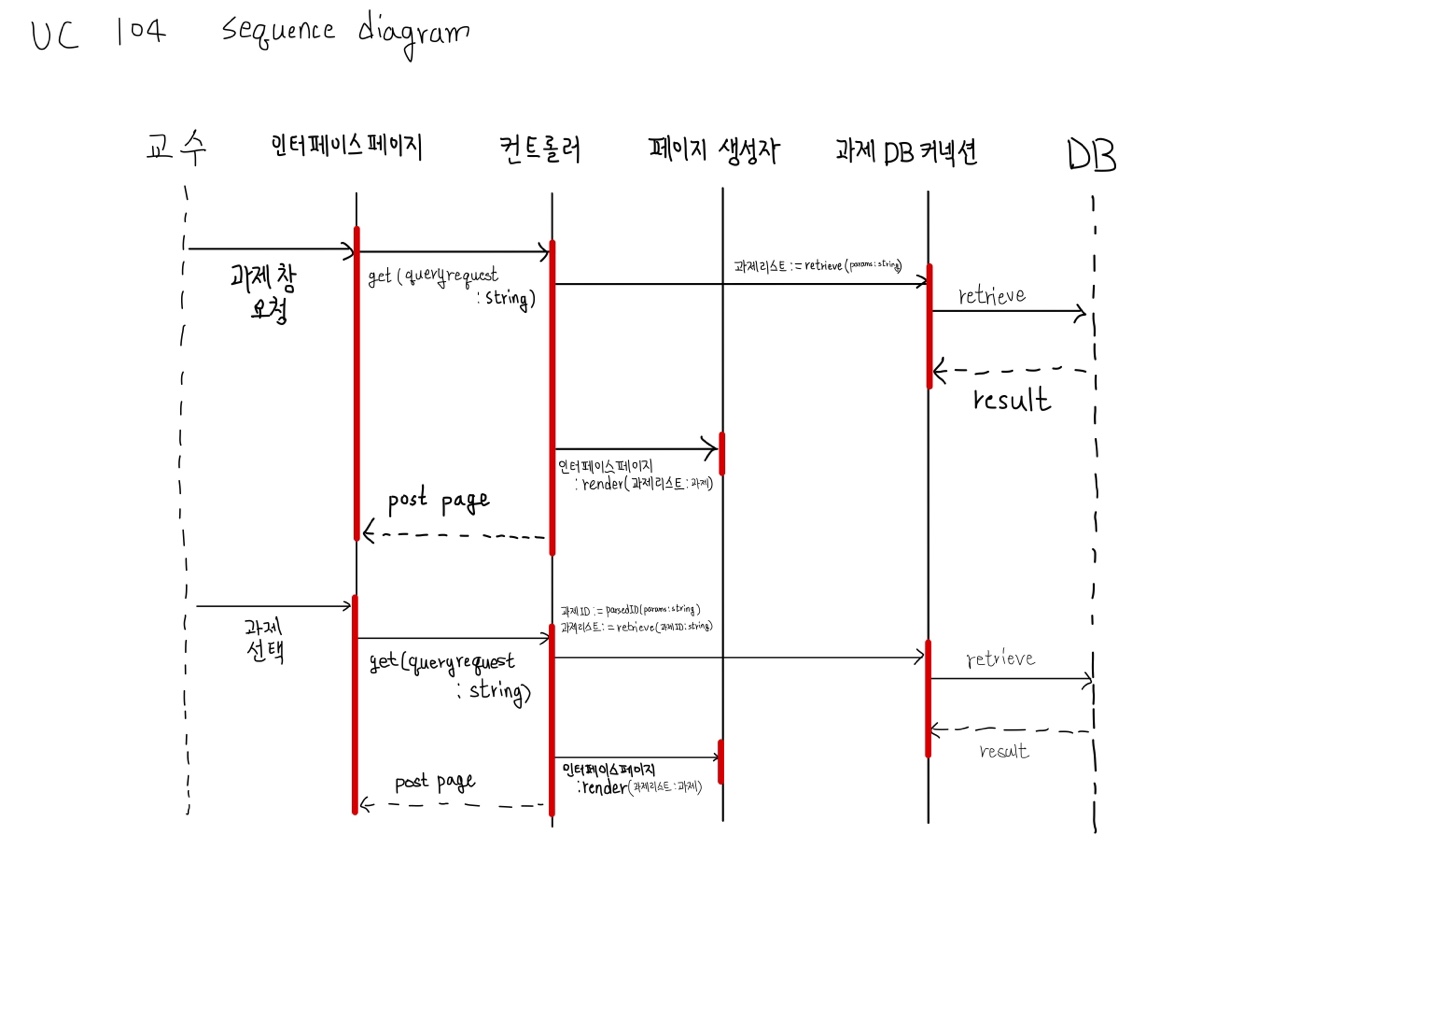 UC 104 sequence diagram
교수 인터페이스페이지 컨트롤러 페이지 생성자 과제 DB 커넥션 DB
과제 창
요청
get (queryrequest
: string)
과제리스트 := retrieve (params : string)
retrieve
result
인터페이스페이지
: render( 과제리스트 : 과제)
post page
과제
선택
get(queryrequest
: string)
과제ID := parsedID(params : string)
과제리스트 := retrieve(과제ID : string)
retrieve
result
인터페이스페이지
:render( 과제리스트 : 과제)
post page